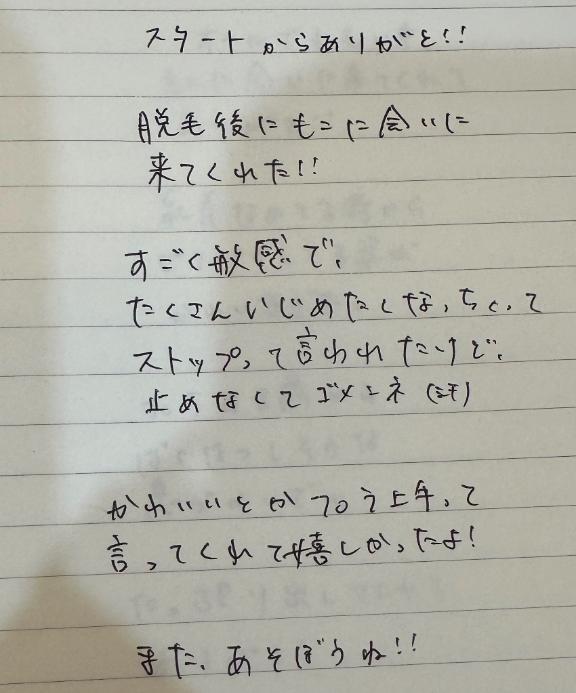 スタートからありがと!!
脱毛後にもこに会いに
来てくれた!!
すごく敏感で、
たくさんいじめたくなっちゃって
ストップって言われたけど、
止めなくてゴメンネ(汗)
かわいいとかフロう上手って
言ってくれて嬉しかったよ!
また、あそぼうね!!